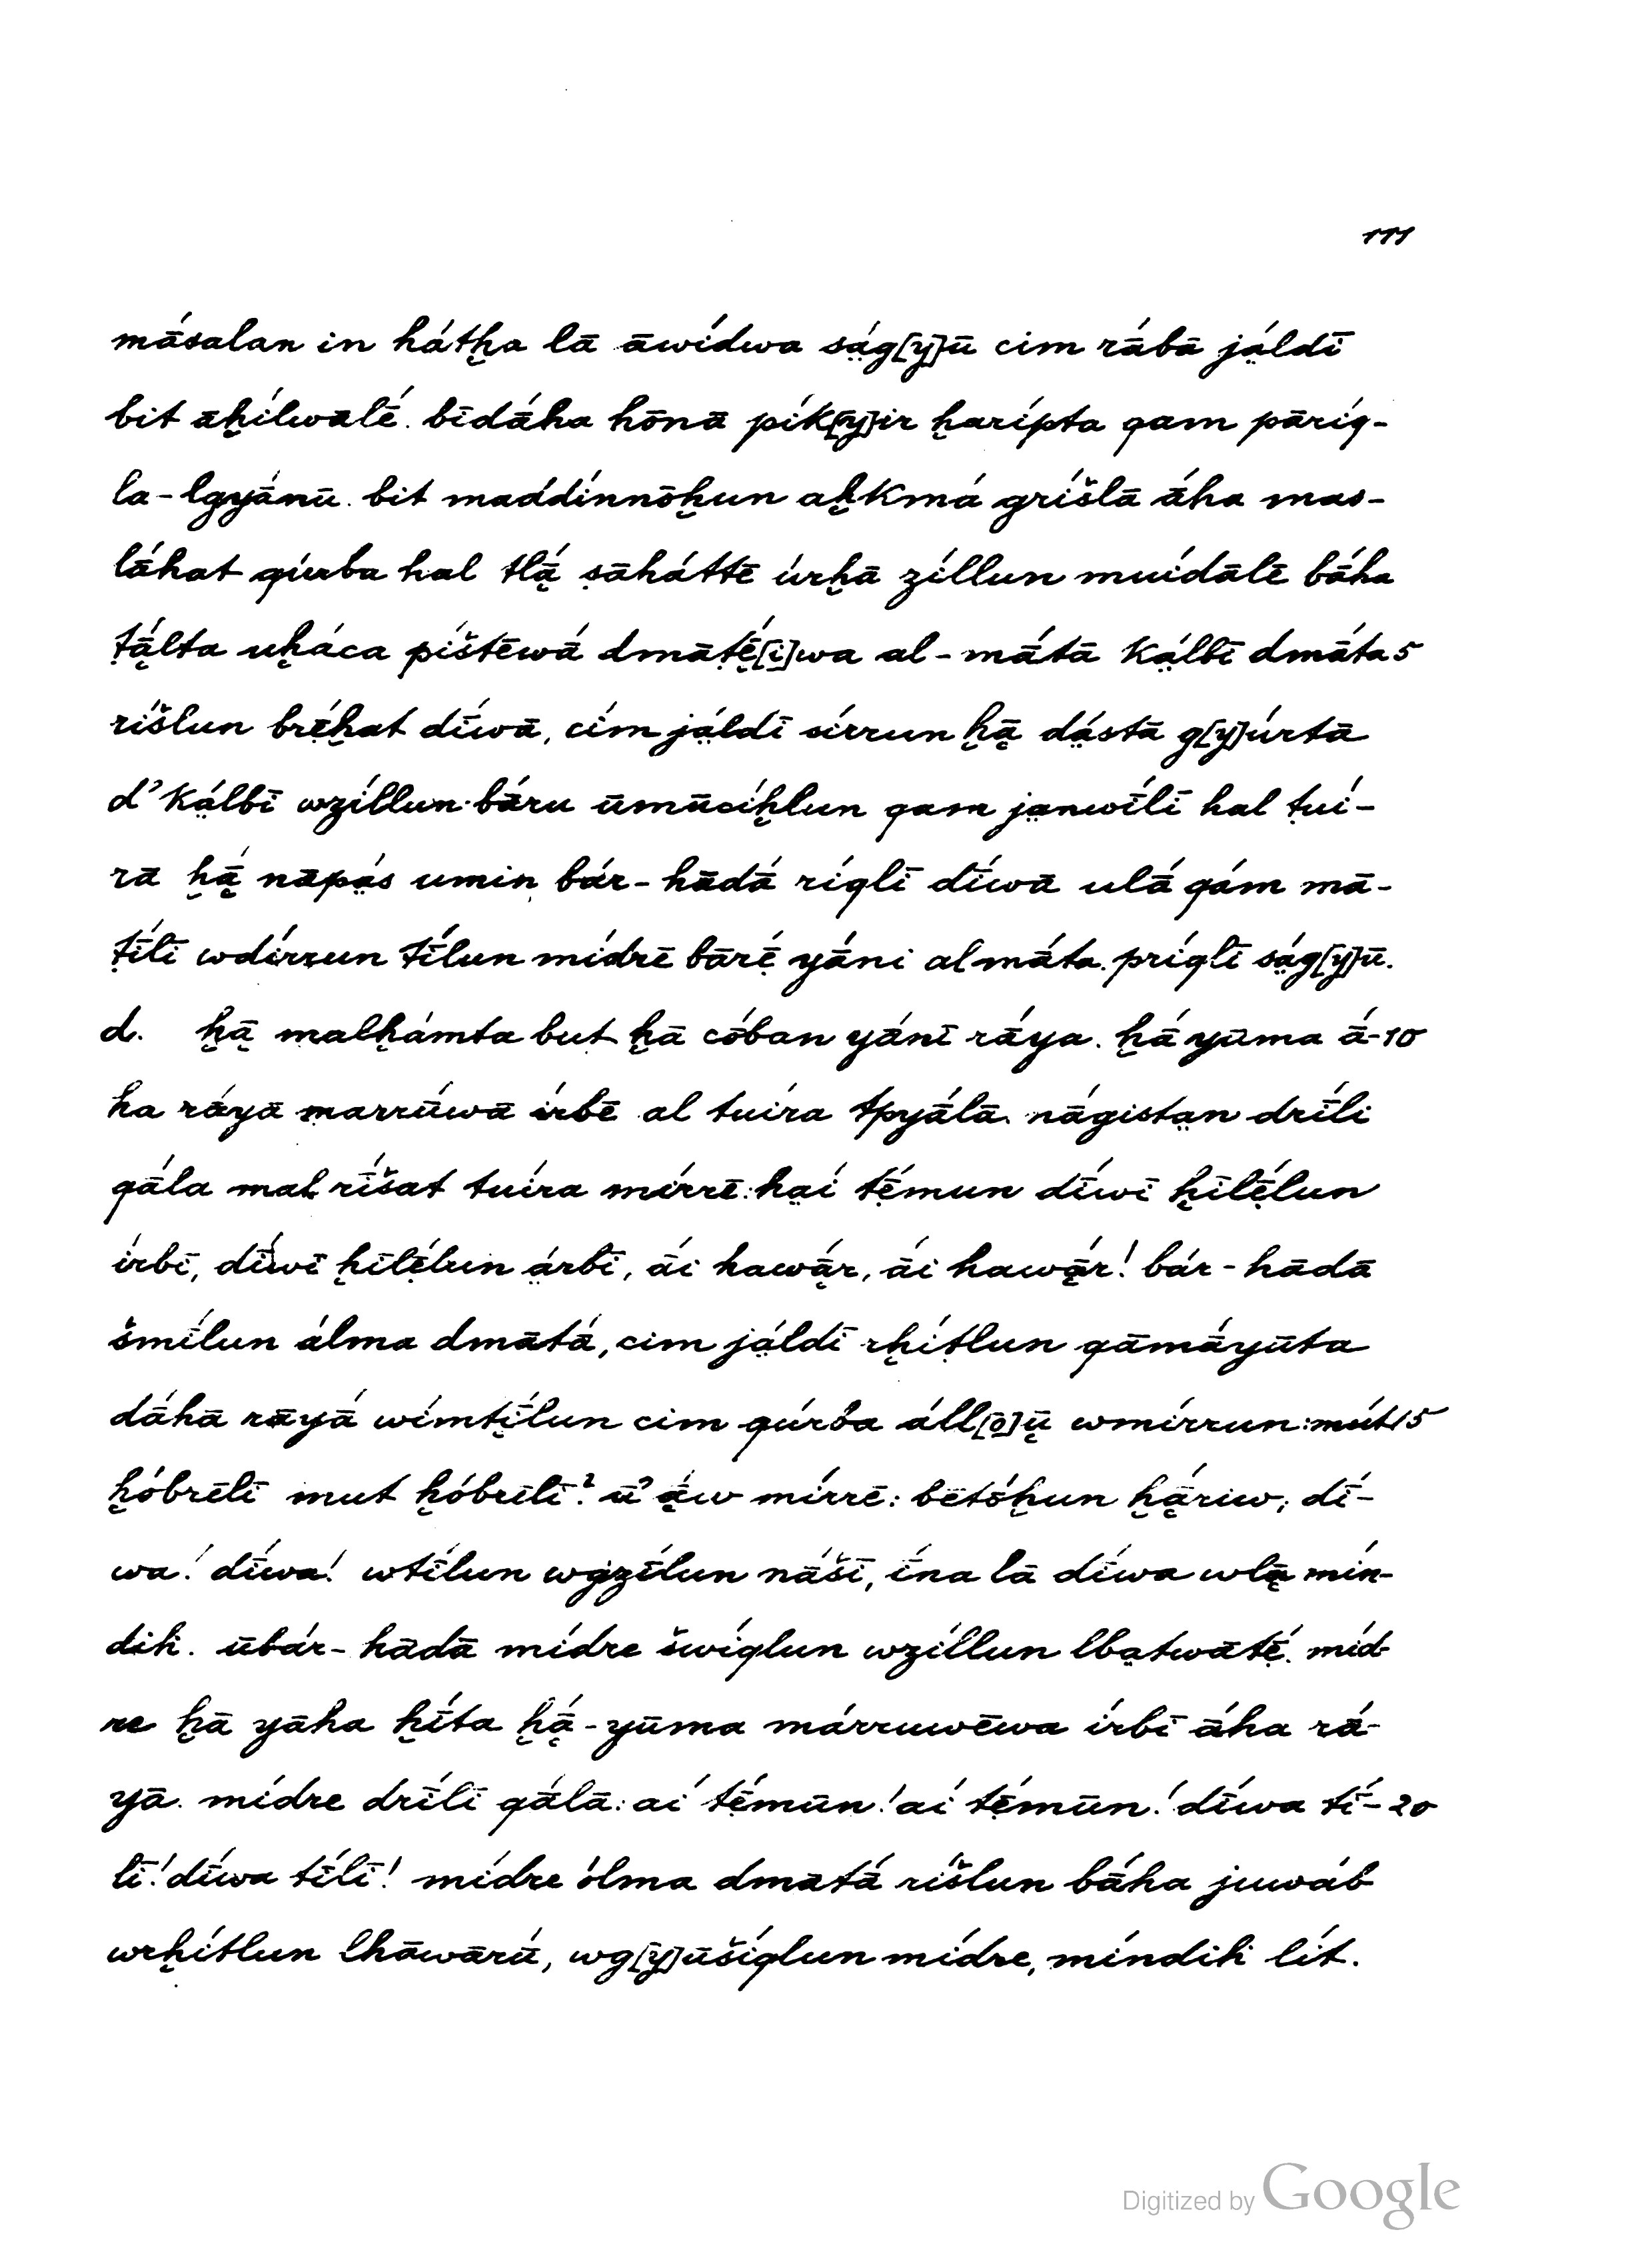 111
mā́salan in hátḫa lā āwídwa sä́g[y]ū cim rā́bā jä́ldī
bit āḫílwālḗ. bīdā́ha hōnā pík[y]ir ḫarípta qam pāríq-
la-lgyā́nū. bit maddínnōḫun aḫkmá gríšlā ā́ha mas-
lā́hat qúrba hal tlā̤́ ṣāháttē úrḫā zíllun muídālē bā́ha
ṭā̤́lta uḫáca píštēwā́ dmāṭḗ[i]wa al-mā́tā kä́lbī dmā́ta 5
ríšlun brḗḫat dī́wā, cím jä́ldī sírrun ḫā̤ dä́stā g[y]úrtā
d' kä́lbī wzíllun bā́ru ūmūcíḫlun qam janwī́lī hal ṭuí-
rā ḫā̤́ nāpä́s umin bár-hādā́ ríqlī dī́wā ulā́ qám mā-
ṭī́lī wdírrun tī́lun mídrē bārḗ yā́ni al mā́ta. príqlī sä́g[y]ū.
d. ḫā̤ malḫámta but ḫā cóban yánī rā́ya. ḫā́ yūma ā́- 10
ha rā́yā marrū́wā írbē al ṭuíra ṭpyā́lā. nāgistän drī́li
qā́la mal ríšat ṭuíra mírrē: haí tḗmun dī́wī ḫīlḗlun
írbī, dī́wī ḫīlḗlun ä́rbī, ā́i hawā̤́r, ā́i hawā̤́r! bár-hādā
šmī́lun álma dmātā́, cim jä́ldī rḫíṭlun qāmā́yūta
dā́hā rāyā́ wímṭī́lun cim qúrba áll[ō]ṳ̄ wmírrun: mút 15
ḫóbrēlī mut ḫóbrīlī? ū' ā̤́w mírrē: bētṓḫun ḫā̤́riw, dī́-
wa! dī́wa! wtī́lun wgzī́lun nā́šī, ī́na lā dī́wa wlā̤ mín-
dih. ūbár-hādā mídre šwíqlun wzíllun lbatwātḗ. míd-
re ḫā yāha ḫī́ta ḫā̤́-yūma márruwēwa írbī ā́ha rā́-
yā. mídre drī́lī qā́lā: aí tḗmūn! aí tḗmūn! dī́wa tī́- 20
lī! dī́wa tī́lī! mídre ólma dmātā́ ríšlun bā́ha juwáb
wrḫíṭlun lhāwārū́, wg[y]ūšíqlun mídre, míndih lít.
Digitized by Google